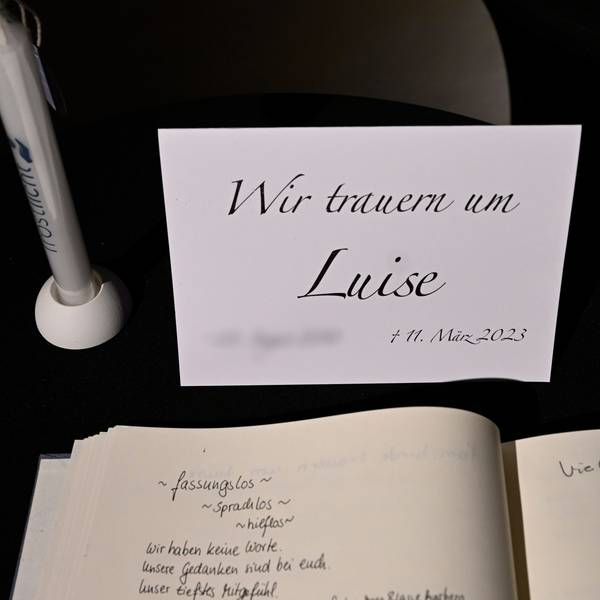 Trostlicht
Wir trauern um
Luise
† 11. März 2023
~ fassungslos ~
~ sprachlos ~
~ hilflos ~
Wir haben keine Worte.
Unsere Gedanken sind bei euch.
Unser tiefstes Mitgefühl.